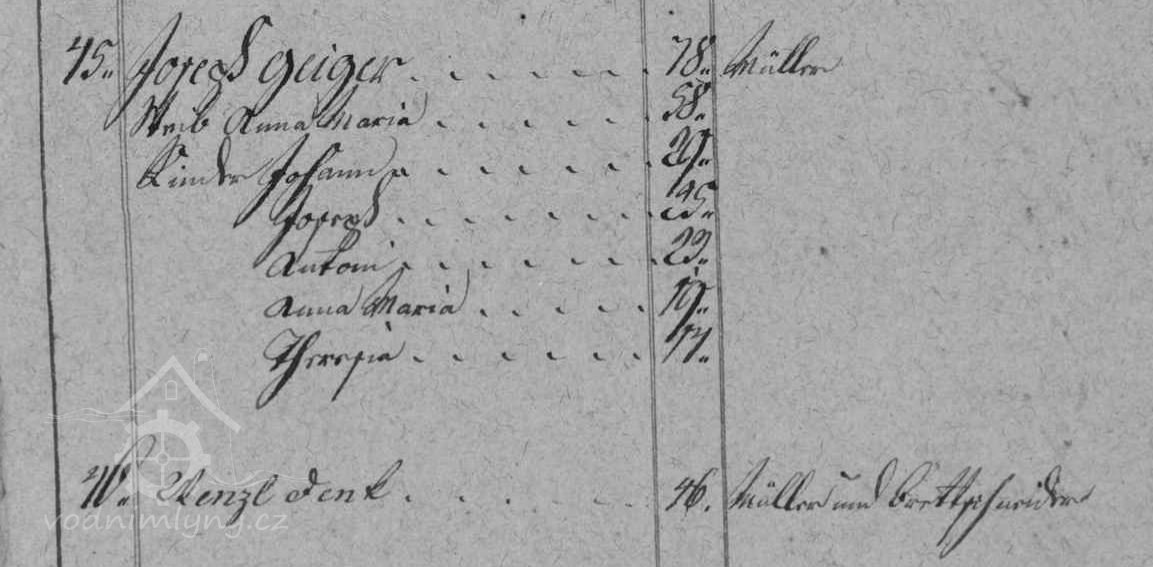 45. Joseph Geiger . . . . . . 78. Müller
Weib Anna Maria . . . . . 58.
Kinder Johann . . . . . . 29.
Joseph . . . . . . 25.
Antoni . . . . . . 23.
Anna Maria . . . . . 19.
Theresia . . . . . . 17.
46. Wenzl Denk . . . . . 46. Müller und Brettschneider
vodnimlyny.cz